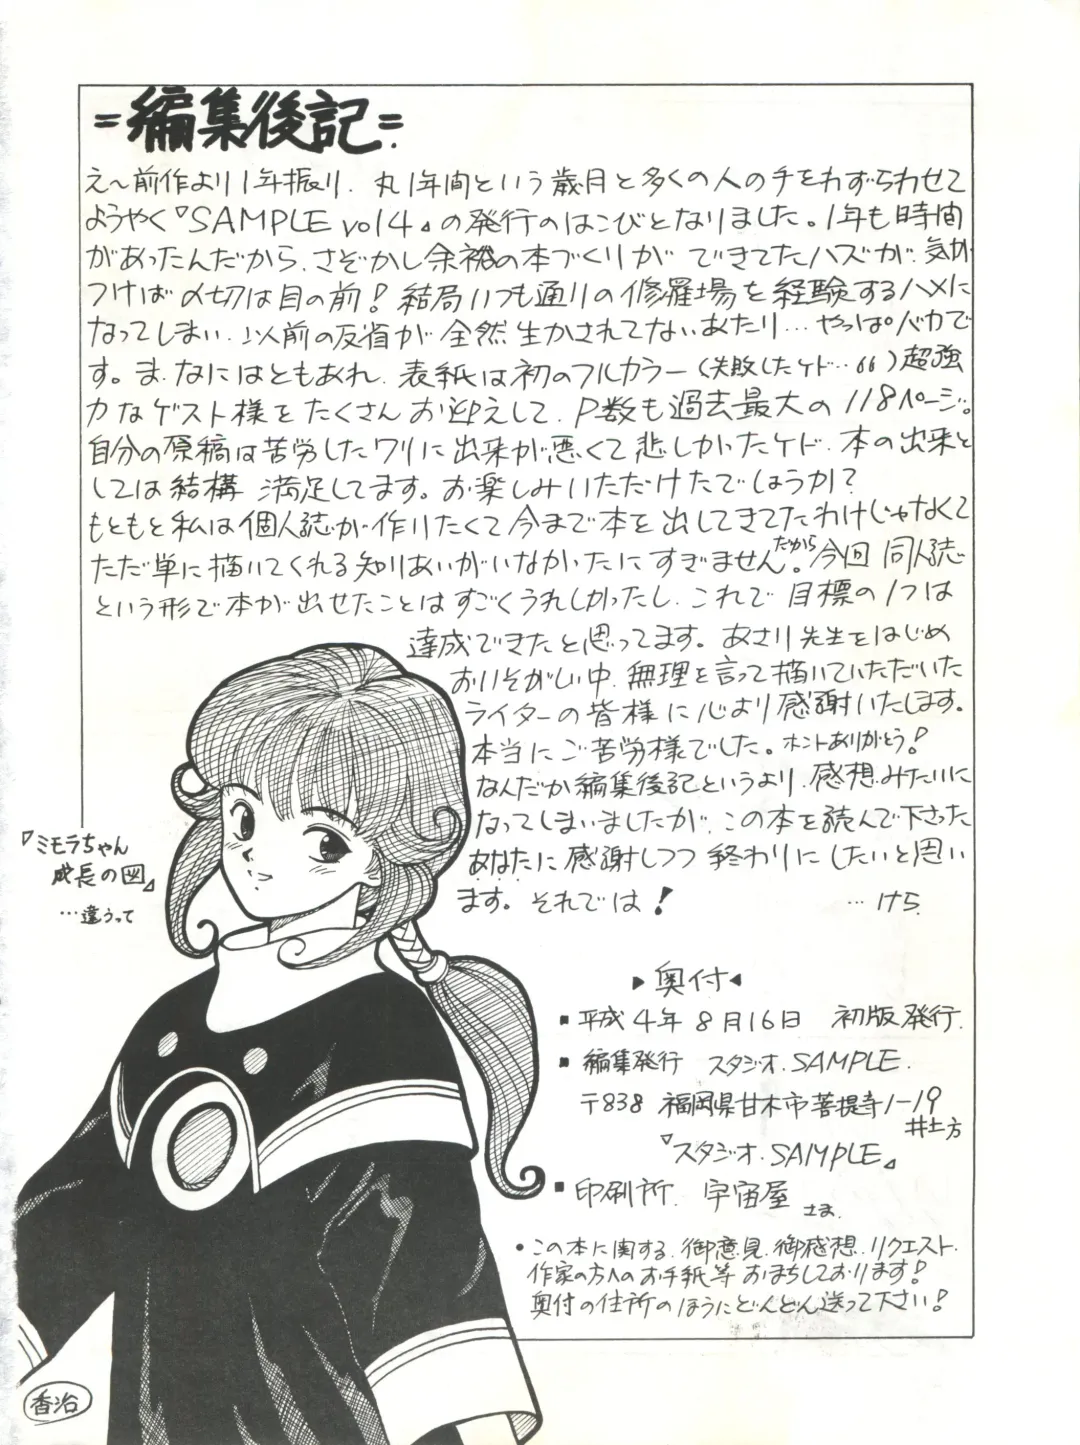 =編集後記=
え～前作より1年振り、丸1年間という歳月と多くの人の手をわずらわせて
ようやく『SAMPLE vol4』の発行のはこびとなりました。1年も時間
があったんだから、さぞかし余裕の本づくりができてたハズが、気が
つけば〆切は目の前!結局いつも通りの修羅場を経験するハメに
なってしまい、以前の反省が全然生かされてないあたり…やっぱバカで
す。ま、なにはともあれ、表紙は初のフルカラー(失敗したケド…)超強
力なゲスト様をたくさんお迎えして、P数も過去最大の118ページ。
自分の原稿は苦労したワリに出来が悪くて悲しかったケド、本の出来と
しては結構満足してます。お楽しみいただけたでしょうか?
もともと私は個人誌が作りたくて今まで本を出してきてたわけじゃなくて
ただ単に描いてくれる知りあいがいなかったにすぎません。だから今回同人誌
という形で本が出せたことはすごくうれしかったし、これで目標の1つは
達成できたと思ってます。あさり先生をはじめ
おいそがしい中、無理を言って描いていただいた
ライターの皆様に心より感謝いたします。
本当にご苦労様でした。ホントありがとう!
なんだか編集後記というより、感想みたいに
なってしまいましたが、この本を読んで下さった
あなたに感謝しつつ終わりにしたいと思い
ます。それでは! …けら
『ミモラちゃん
成長の図』
…違うって
▶奥付◀
■平成4年8月16日 初版発行.
■編集発行 スタジオ.SAMPLE.
〒838 福岡県甘木市菩提寺1-19
井上方
『スタジオ.SAMPLE』
■印刷所. 宇宙屋さま.
・この本に関する、御意見、御感想、リクエスト、
作家の方へのお手紙等おまちしております!
奥付の住所のほうにどんどん送って下さい!
香治